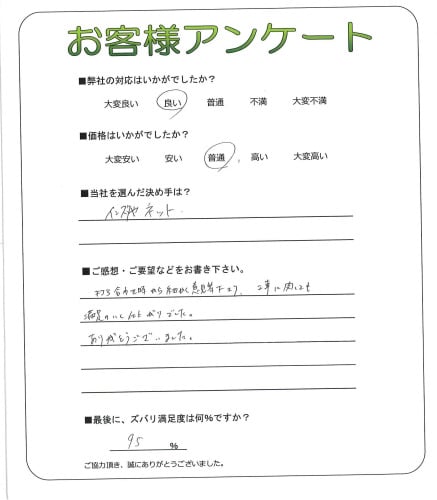 お客様アンケート
■弊社の対応はいかがでしたか？
大変良い 良い 普通 不満 大変不満
■価格はいかがでしたか？
大変安い 安い 普通 高い 大変高い
■当社を選んだ決め手は？
ネット
■ご感想・ご要望などをお書き下さい。
打ち合わせ時から細かく意見等下さり、工事に関しても
満足のいく仕上がりでした。
ありがとうございました。
■最後に、ズバリ満足度は何%ですか？
95 %
ご協力頂き、誠にありがとうございました。